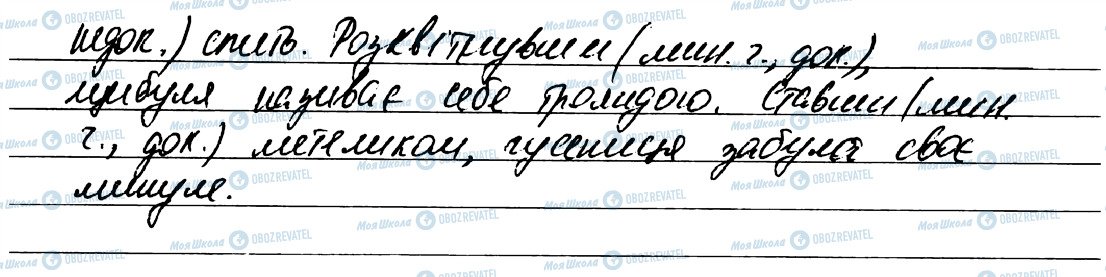 недок.) спить. Розквітнувши (мин. ч., док.),
цибуля називає себе трояндою. Ставши (мин.
ч., док.) метеликом, гусениця забула своє
минуле.